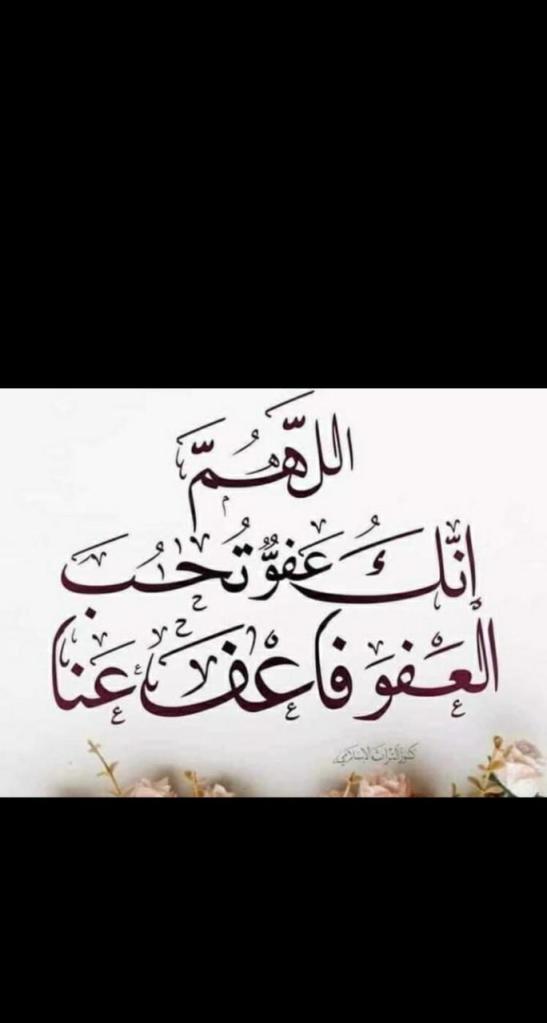 اللَّهُمَّ
إِنَّكَ عَفُوٌّ تُحِبُّ
الْعَفْوَ فَاعْفُ عَنَّا
كنوز التراث الإسلامي